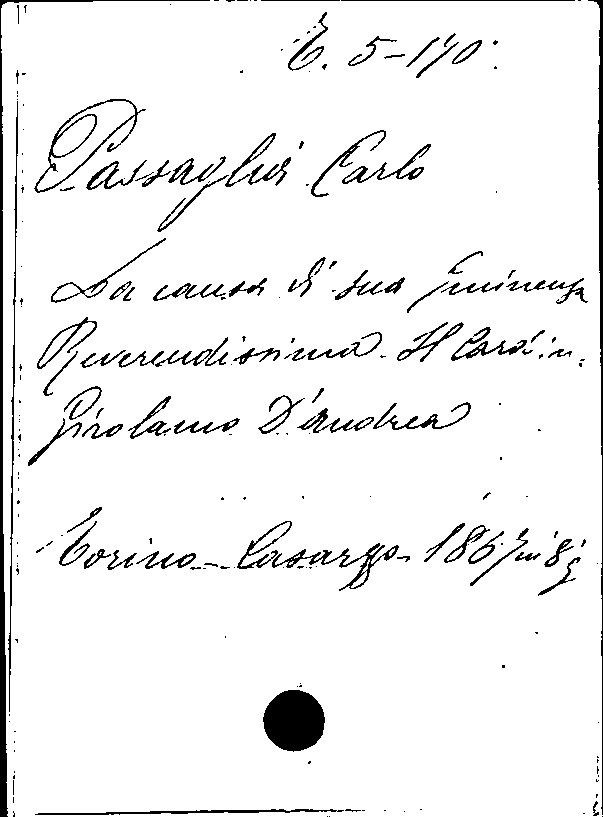 E. 5-170.
Passaglia Carlo
La causa di sua Eminenza
Reverendissima Il Cardin.
Girolamo D'Andrea
Torino - Casarzo - 1867 in 8º